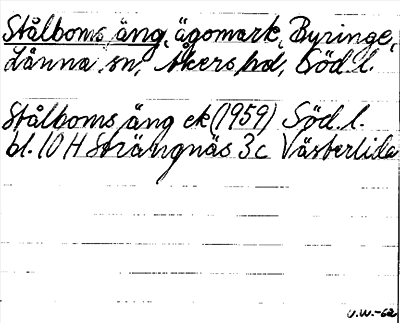 Stålboms äng, ägomark, Byringe,
Länna sn, Åkers hd, Södl.
Stålboms äng ek (1959) Södl.
bl. 10 H Strängnäs 3c Västerlida
U.W.-62